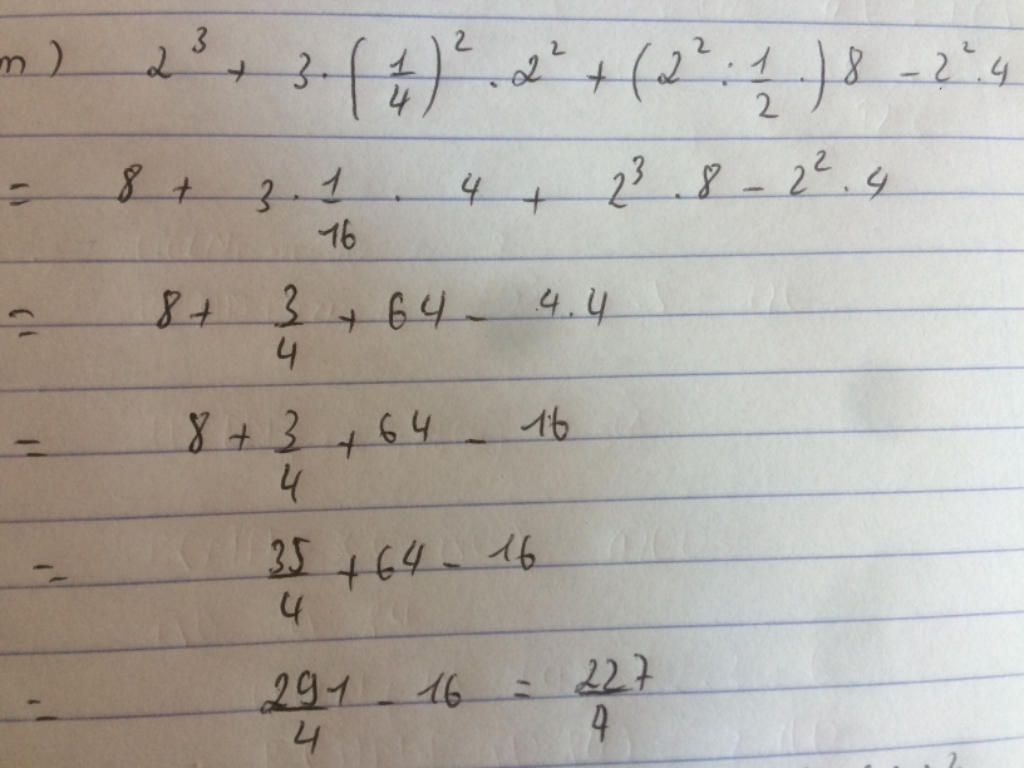 m) 2³ + 3 · (1/4)² · 2² + (2² : 1/2 ·) 8 - 2² · 4
= 8 + 3 · 1/16 · 4 + 2³ · 8 - 2² · 4
= 8 + 3/4 + 64 - 4 . 4
= 8 + 3/4 + 64 - 16
= 35/4 + 64 - 16
= 291/4 - 16 = 227/4